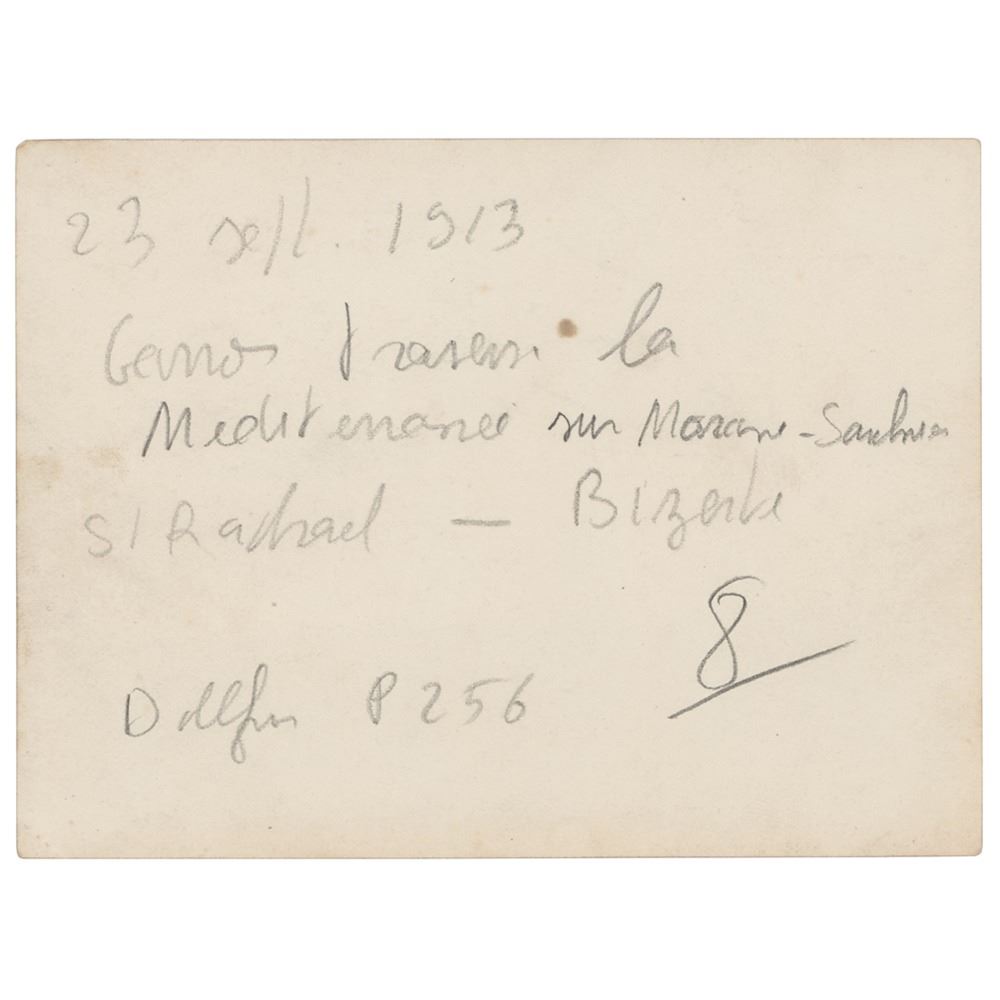 23 sept. 1913
Garros traverse la
Mediterranée sur Morane-Saulnier
St Raphael — Bizerte
8
Dollfus P 256